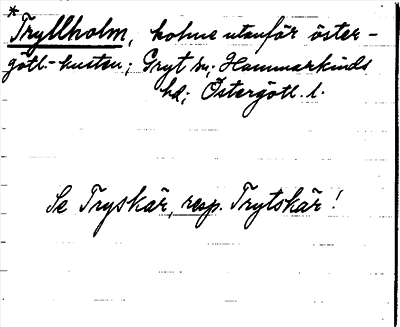 *Tryllholm, holme utanför öster-
götl.-kusten; Gryt sn, Hammarkinds
hd; Östergötl. l.
Se Tryskär, resp. Trytskär!